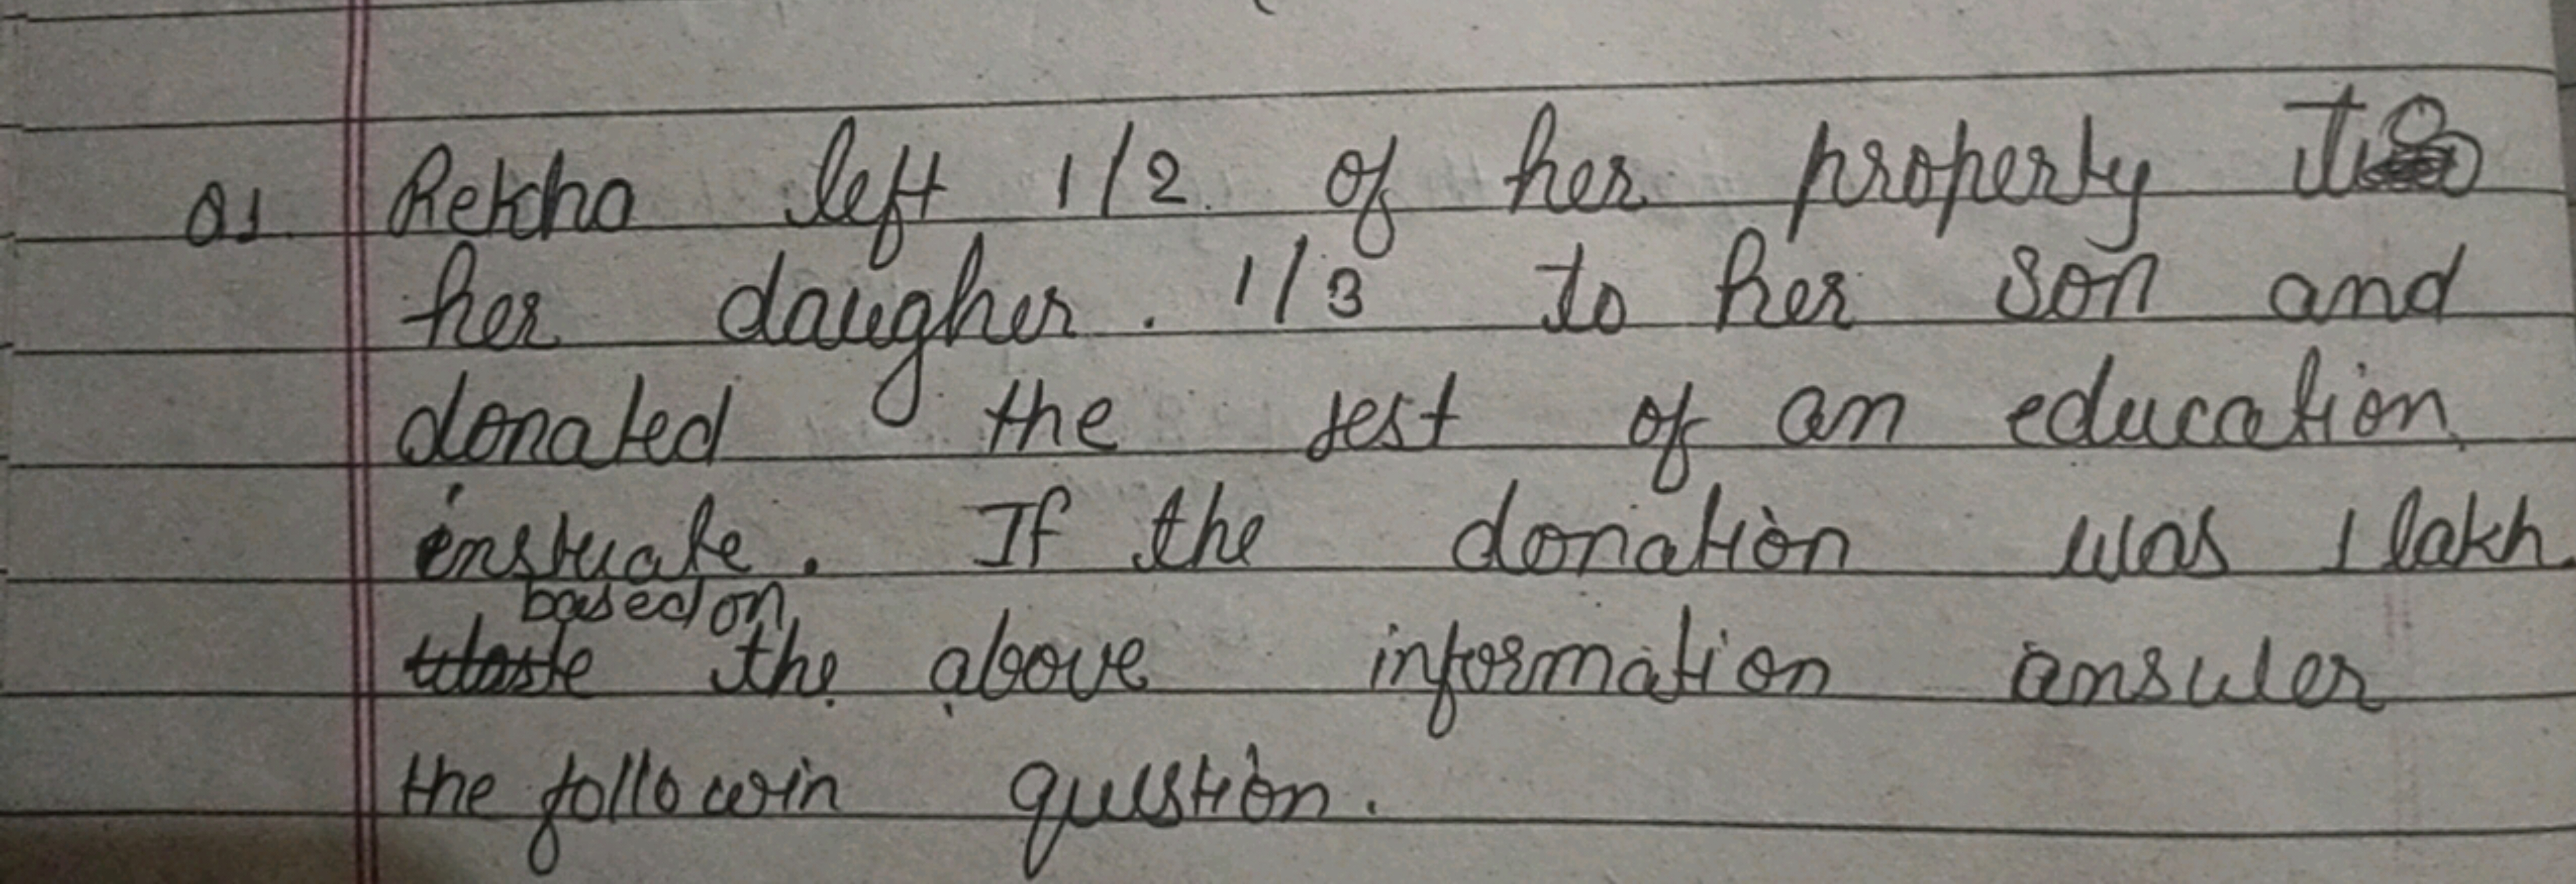 Q1. Rekha left 1/2 of her property to
her daugher. 1/3 to her son and
donated the rest of an education
If the donation was 1 lakh
based on
the above information answer
the followin question.